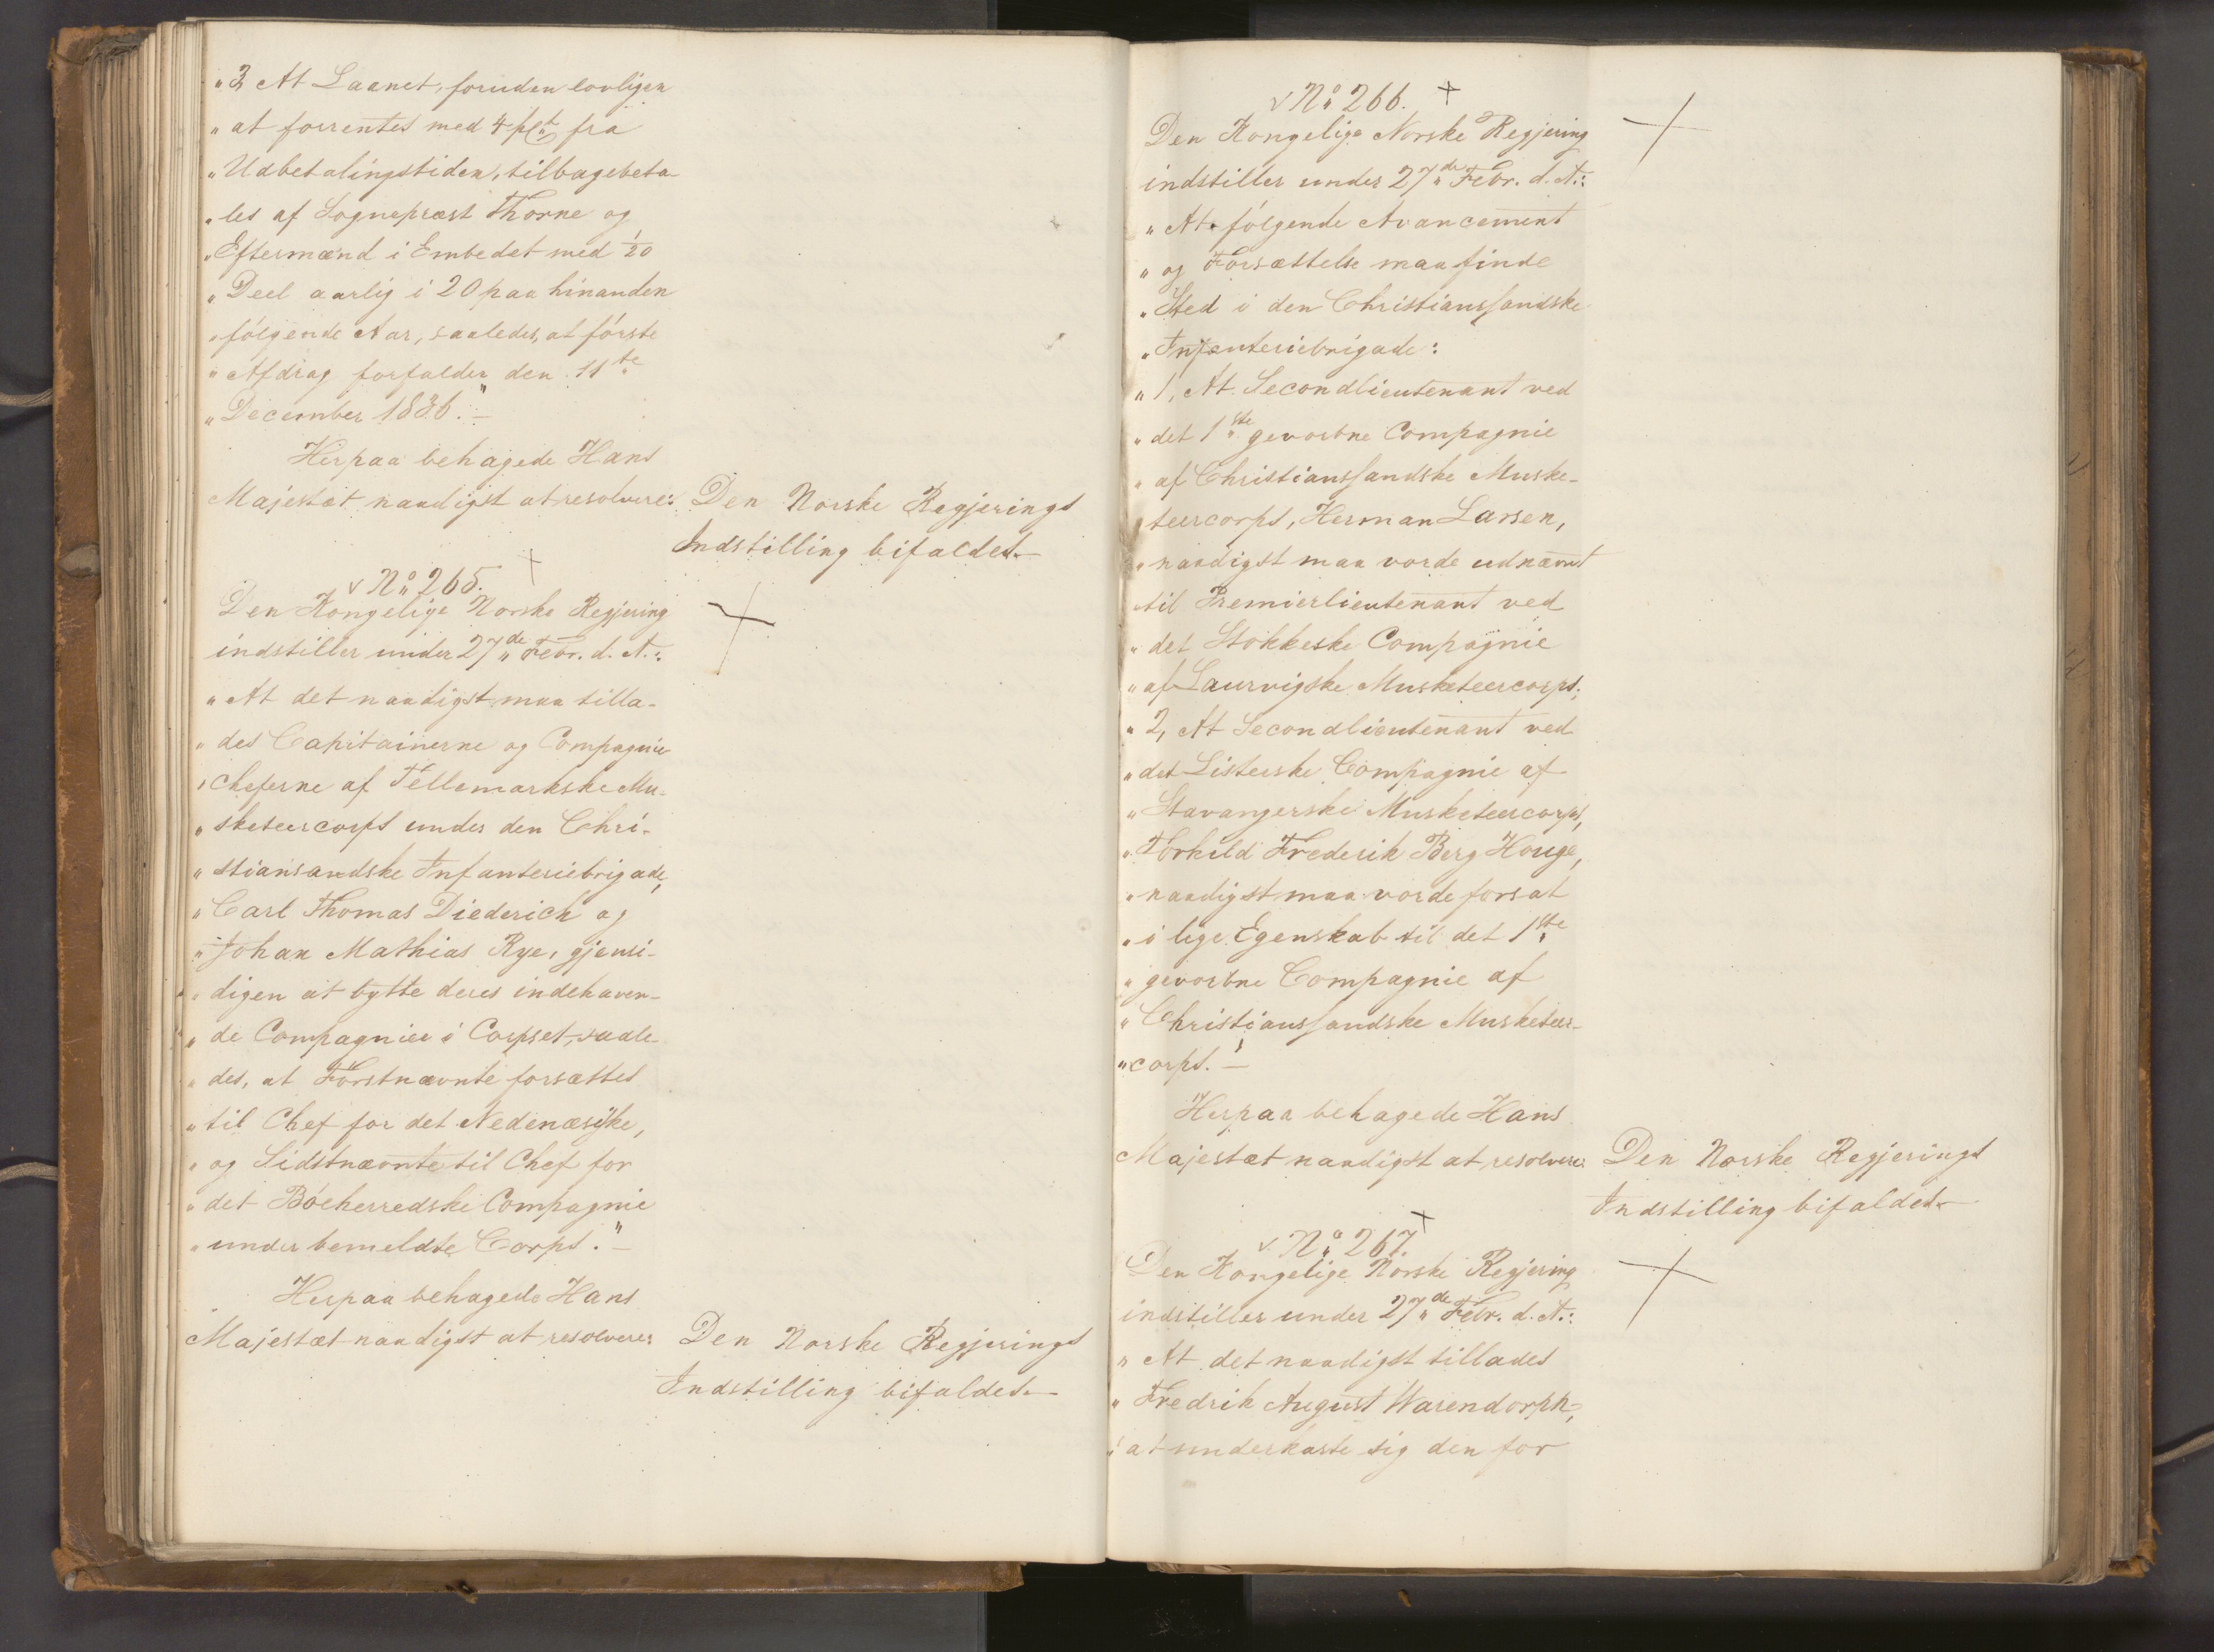 „3, At Laanet, foruden lovligen
„at forrentes med 4 pCt. fra
„Udbetalingstiden, tilbagebeta-
„les af Sognepræst Thorne og
„Eftermænd i Embedet med 1/20
„Deel aarlig i 20 paa hinanden
„følgende Aar, saaledes, at første
„Afdrag forfalder den 11te
„December 1836."-
Herpaa behagede Hans
Majestæt naadigst at resolvere:
Den Norske Regjerings
Indstilling bifaldes.-
v No 265. +
Den Kongelige Norske Regjering
indstiller under 27de Febr. d. A.:
„At det naadigst maa tilla-
„des Capitainerne og Compagnie-
„cheferne af Tellemarkske Mu-
„sketeercorps under den Chri-
„stiansandske Infanteriebrigade,
„Carl Thomas Diederich og
„Johan Mathias Rye, gjensi-
„digen at bytte deres indehaven-
„de Compagnier i Corpset, saale-
„des, at Førstnævnte forsættes
„til Chef for det Nedenæsyke,
„og Sidstnævnte til Chef for
„det Bøeherredske Compagnie
„under bemeldte Corps."-
Herpaa behagede Hans
Majestæt naadigst at resolvere:
Den Norske Regjerings
Indstilling bifaldes.-
v No 266. +
Den Kongelige Norske Regjering
indstiller under 27de Febr. d. A.:
„At følgende Avancement
„og Forsættelse maa finde
„Sted i den Christianssandske
„Infanteriebrigade:
„1, At Secondlieutenant ved
„det 1ste gevorbne Compagnie
„af Christianssandske Muske-
„teercorps, Herman Larsen,
„naadigst maa vorde udnævnt
„til Premierlieutenant ved
„det Stokkeske Compagnie
„af Laurvigske Musketeercorps;
„2, At Secondlieutenant ved
„det Listerske Compagnie af
„Stavangerske Musketeercorps,
„Torkild Frederik Berg Houge,
„naadigst maa vorde forsat
„i lige Egenskab til det 1ste
„gevorbne Compagnie af
„Christianssandske Musketeer-
„corps."-
Herpaa behagede Hans
Majestæt naadigst at resolvere:
Den Norske Regjerings
Indstilling bifaldes.-
v No 267. +
Den Kongelige Norske Regjering
indstiller under 27de Febr. d. A.:
„At det naadigst tillades
„Fredrik August Warendorph,
„at underkaste sig den for